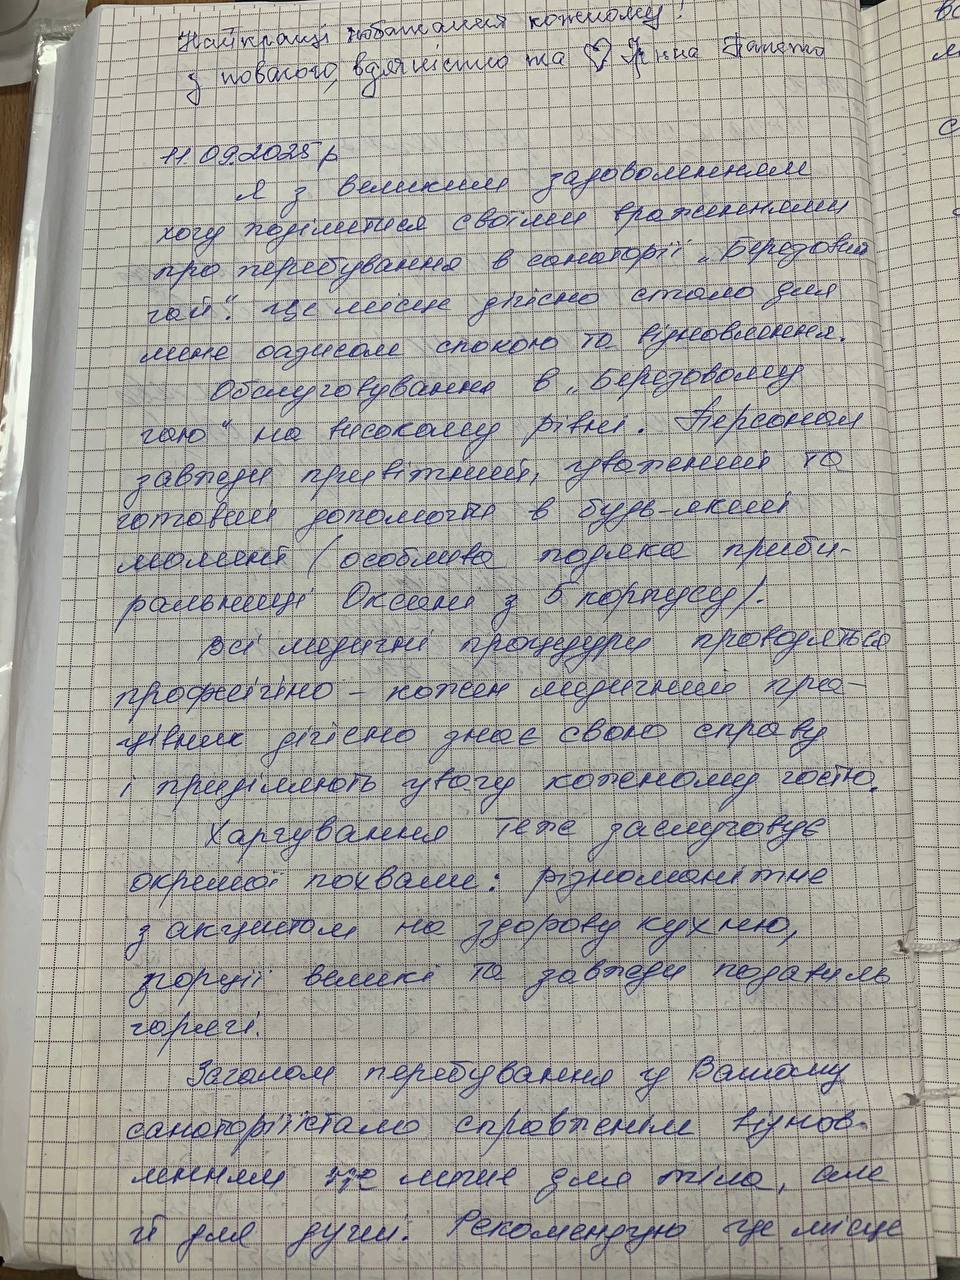 Найкращі побажання кожному!
з повагою, вдячністю та ♡ Яніна
11.09.2025р
Я з великим задоволенням
хочу поділитися своїми враженнями
про перебування в санаторії „Березовий
гай". Це місце дійсно стало для
мене оазисом спокою та відновлення.
Обслуговування в „Березовому
гаю" на високому рівні. Персонал
завжди привітний, уважний та
готовий допомогти в будь-який
момент (особлива подяка приби-
ральниці Оксані з 5 корпусу).
Всі медичні процедури проводяться
професійно – кожен медичний пра-
цівник дійсно знає свою справу
і приділяють увагу кожному гостю.
Харчування теж заслуговує
окремої похвали: різноманітне
з акцентом на здорову кухню,
порції великі та завжди подають
гарячі.
Загалом перебування у Вашому
санаторії стало справжнім віднов-
ленням не лише для тіла, але
й для душі. Рекомендую це місце